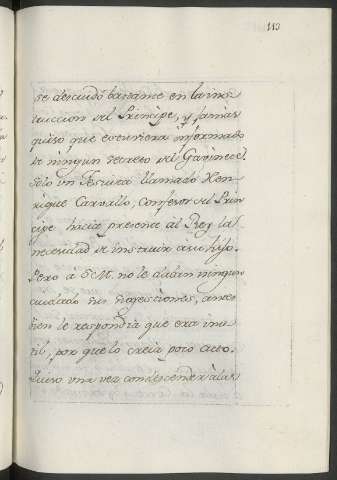 113
se descuidó bastante en la ins-
truccion del Principe, y jamas
quiso que estuviera informado
de ningun secreto del Gavinete.
Solo un Jesuita llamado Hen-
rique Carvallo, confesor del Prin-
cipe hacia presente al Rey la
necesidad de instruir a su hijo.
Pero á S.M. no le daban ningun
cuidado sus sugestiones, antes
bien le respondia que era inu-
til, por que lo creia poco apto.
Quiso una vez condescender à las